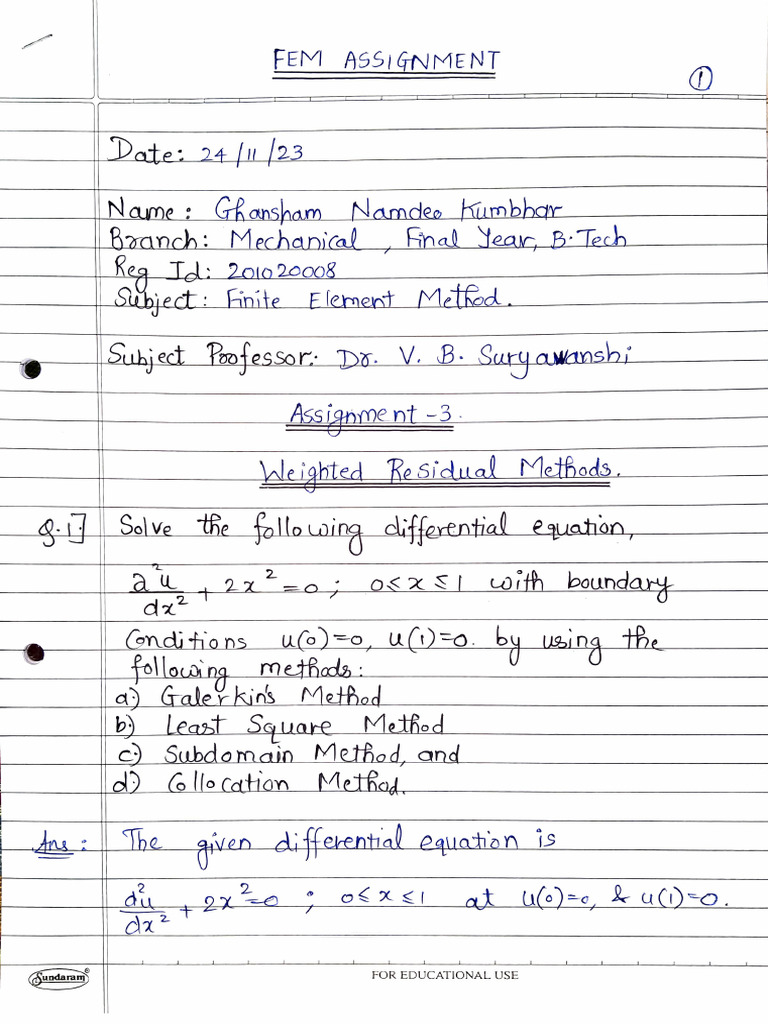 FEM ASSIGNMENT
1
Date: 24/11/23
Name: Ghansham Namdeo Kumbhar
Branch: Mechanical, Final Year, B.Tech
Reg Id: 201020008
Subject: Finite Element Method.
Subject Professor: Dr. V. B. Suryawanshi
Assignment-3.
Weighted Residual Methods.
Q.1] Solve the following differential equation,
d²u/dx² + 2x² = 0 ; 0≤x≤1 with boundary
Conditions u(0)=0, u(1)=0. by using the
following methods:
a) Galerkin's Method
b) Least Square Method
c) Subdomain Method, and
d) Collocation Method.
Ans: The given differential equation is
d²u/dx² + 2x²=0 ; 0≤x≤1 at u(0)=0, & u(1)=0.
Sundaram® FOR EDUCATIONAL USE